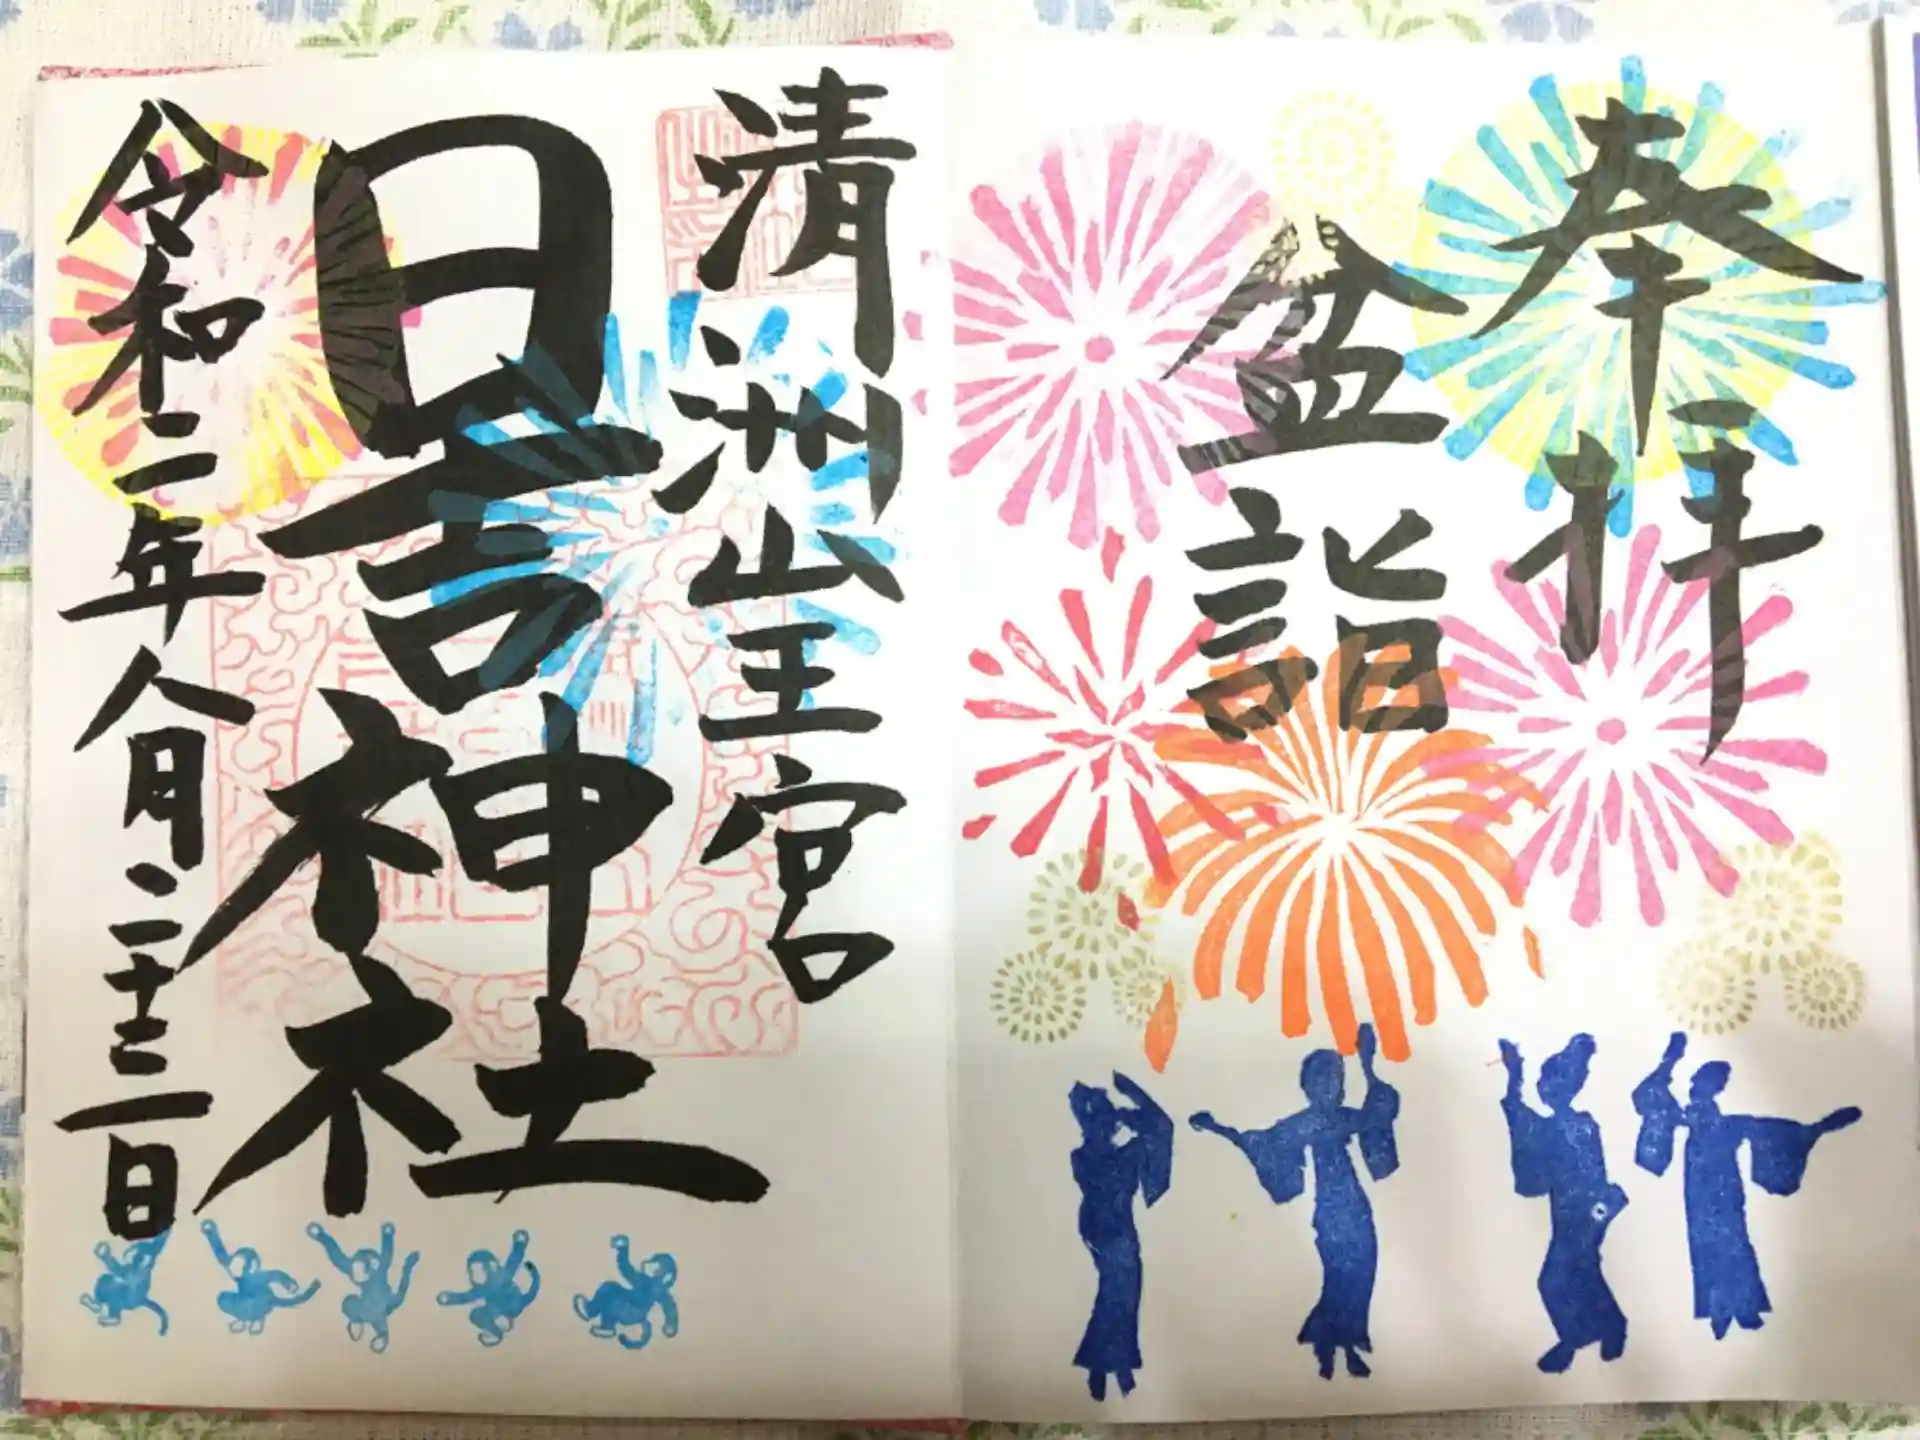 奉拝
盆詣
清洲山王宮
日吉神社
令和二年八月二十三日